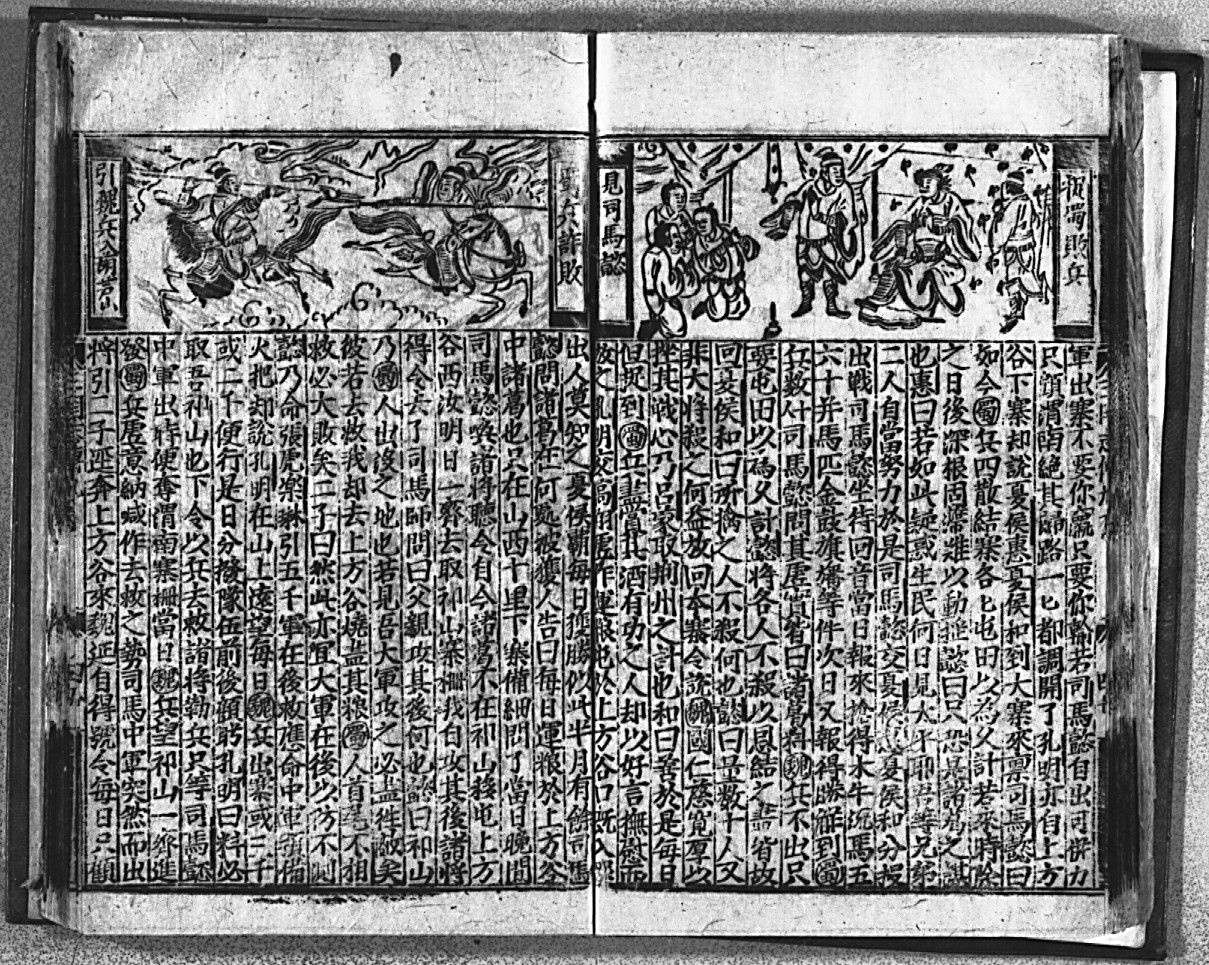 蜀敗兵
見司馬懿
軍出寨不要你贏只要你輸若司馬懿自出可併力
只領渭南絶其歸路一匕都調開了孔明亦自上方
谷下寨却說夏侯惠夏侯和到大寨來禀司馬懿曰
如今蜀兵四散結寨各匕屯田以為久計若來時除
之日後深根固蒂難以動揺懿曰只恐是諸葛之謀
也惠曰若如此疑惑生民何日見太平耶吾等兄第
二人自當努力於是司馬懿交夏侯惠夏侯和分投
出戰司馬懿坐待回音當日報來搶得木牛流馬五
六十并馬匹金鼓旗旛等件次日又報得勝解到蜀
兵数什司馬懿問其虛實皆曰諸葛料魏兵不出只
要屯田以為久計懿將各人不殺以恩結之盖省故
回夏侯和曰所擒之人不殺何也懿曰量数十人又
非大将殺之何益放回本寨令說魏國仁慈寬厚以
挫其戰心乃呂蒙取荆州之計也和曰善於是每日
但捉到蜀兵盡賞其酒有功之人却以好言撫慰而
放之孔明交高翔虛作運粮也於上方谷口既入
蜀兵詐敗
引魏兵入葫芦山
出人莫知之夏侯霸每日獲勝似此半月有餘司馬
懿問諸葛在何處被獲人告曰每日運粮於上方谷
中諸葛也只在山西十里下寨備細問了當日晚間
司馬懿喚諸将聽令自今諸葛不在祁山移屯上方
谷西汝明日一齊去取祁山寨柵我自攻其後諸將
得令去了司馬師問曰父親攻其後何也懿曰祁山
乃蜀人出沒之地也若見吾大軍攻之必盡往救矣
彼若去救我却去上方谷燒盡其粮蜀人首尾不相
救必大敗矣二子曰然此亦宜大軍在後以防不測
懿乃命張虎樂綝引五千軍在後救應命中軍預備
火把却說孔明在山上遠望每日魏兵出寨或三千
或二千便行是日分撥隊伍前後顧盻孔明曰料必
取吾祁山也下令以兵去救諸将勒兵只等司馬懿
中軍出時便奪渭南寨柵當日魏兵望祁山一齊進
發蜀兵虛意納喊作去救之勢司馬中軍突然而出
將引二子逕奔上方谷來魏延自得號令每日只觀